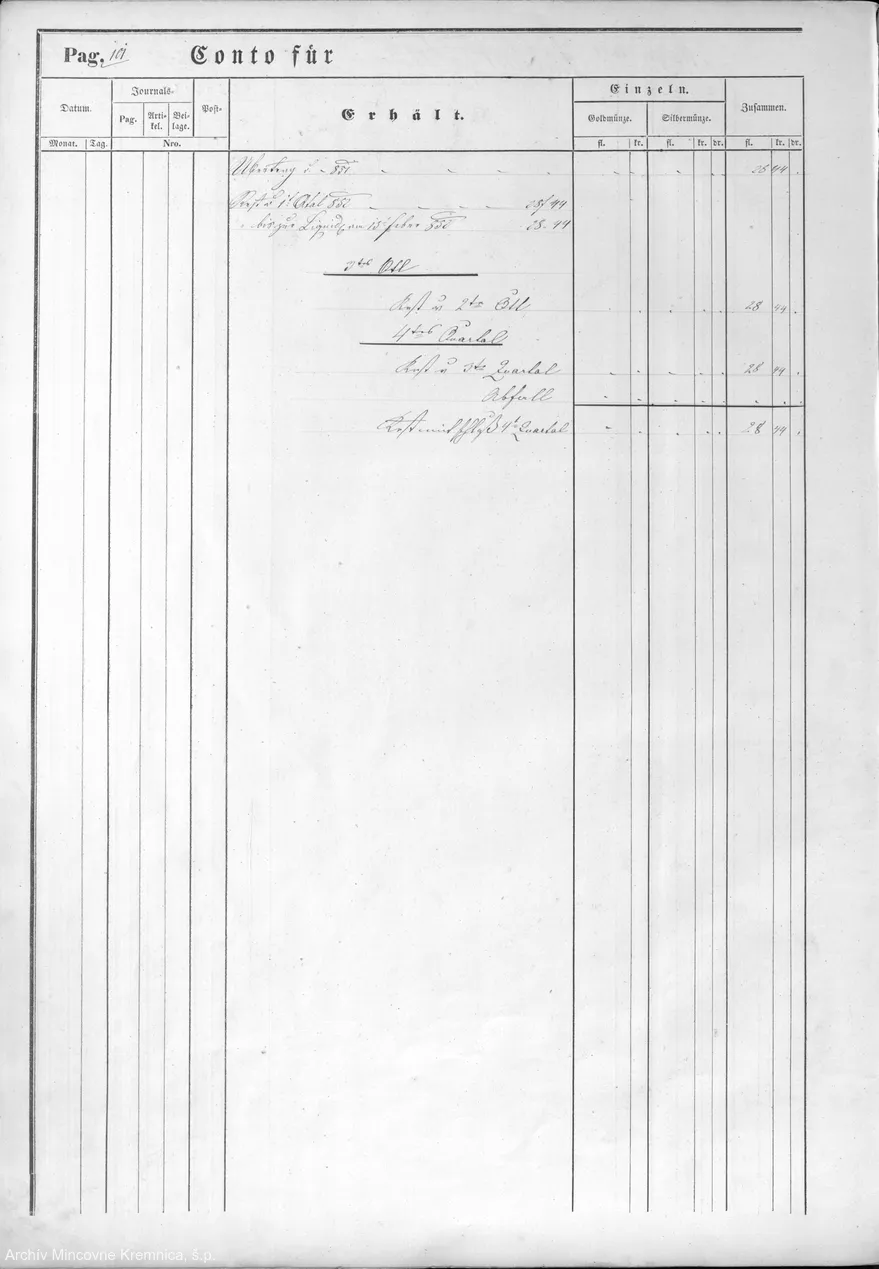 Pag. 101 Conto für
Datum. Journals- Post- Erhält. Einzeln. Zusammen.
Pag. Arti-kel. Bei-lage. Goldmünze. Silbermünze.
Monat. Tag. Nro. fl. kr. fl. kr. dr. fl. kr. dr.
Übertrag v. 851 28 44
Rest v 1t Qtal 852 28/44
" bis zur Liquid. am 15 feber 852 28. 44
3tes Qtl
Rest v 2ten Qtl 28 44
4tes Quartal
Rest v 3ten Quartal 28 44
Abfall
Rest mit Schluß 4t Quartal 28 44
Archív Mincovne Kremnica, š.p.